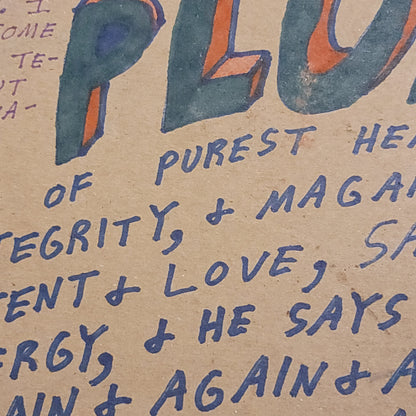 I
OME
TE-
UT
A-
PLU
OF PUREST HEA
TEGRITY, & MAGA
TENT & LOVE, SA
ERGY, & HE SAYS
AIN & AGAIN & A